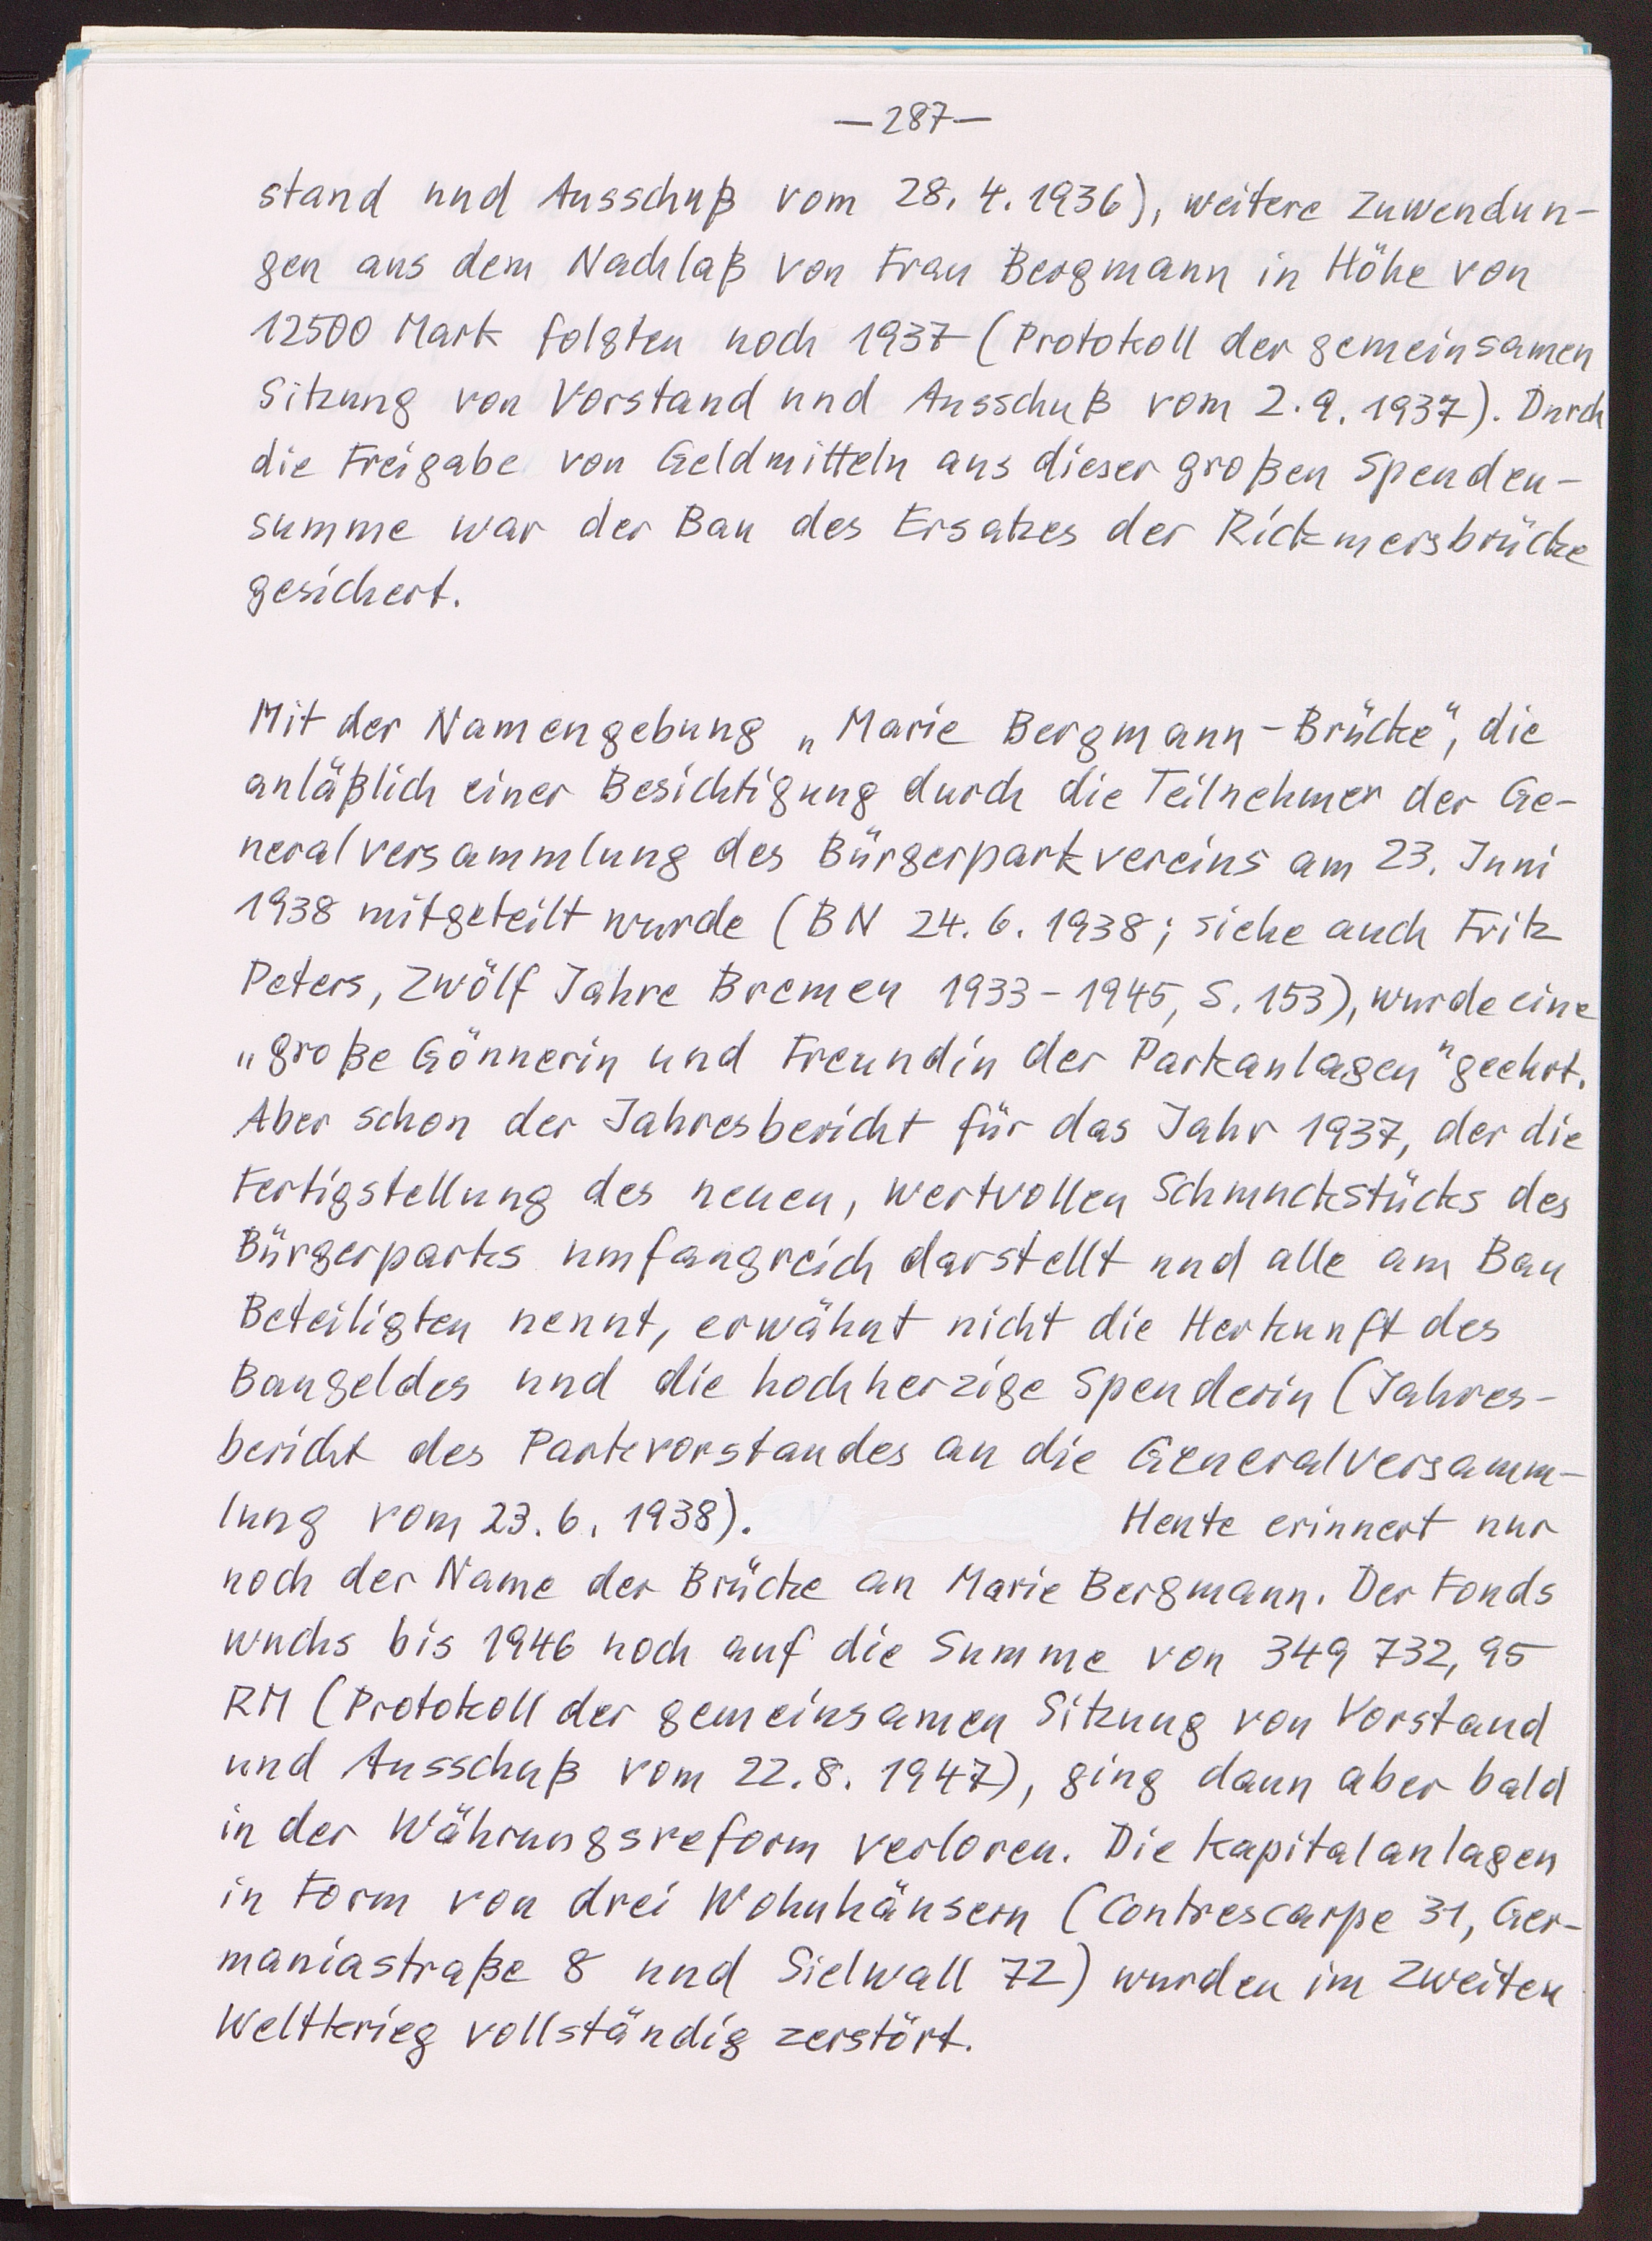 — 287 —
stand und Ausschuß vom 28. 4. 1936), weitere Zuwendun-
gen aus dem Nachlaß von Frau Bergmann in Höhe von
12500 Mark folgten noch 1937 (Protokoll der gemeinsamen
Sitzung von Vorstand und Ausschuß vom 2. 9. 1937). Durch
die Freigabe von Geldmitteln aus dieser großen Spenden-
summe war der Bau des Ersatzes der Rickmersbrücke
gesichert.
Mit der Namengebung „Marie Bergmann-Brücke", die
anläßlich einer Besichtigung durch die Teilnehmer der Ge-
neralversammlung des Bürgerparkvereins am 23. Juni
1938 mitgeteilt wurde (BN 24. 6. 1938; siehe auch Fritz
Peters, Zwölf Jahre Bremen 1933-1945, S. 153), wurde eine
„große Gönnerin und Freundin der Parkanlagen" geehrt.
Aber schon der Jahresbericht für das Jahr 1937, der die
Fertigstellung des neuen, wertvollen Schmuckstücks des
Bürgerparks umfangreich darstellt und alle am Bau
Beteiligten nennt, erwähnt nicht die Herkunft des
Baugeldes und die hochherzige Spenderin (Jahres-
bericht des Parkvorstandes an die Generalversamm-
lung vom 23. 6. 1938). Heute erinnert nur
noch der Name der Brücke an Marie Bergmann. Der Fonds
wuchs bis 1946 noch auf die Summe von 349 732, 95
RM (Protokoll der gemeinsamen Sitzung von Vorstand
und Ausschuß vom 22. 8. 1947), ging dann aber bald
in der Währungsreform verloren. Die Kapitalanlagen
in Form von drei Wohnhäusern (Contrescarpe 31, Ger-
maniastraße 8 und Sielwall 72) wurden im Zweiten
Weltkrieg vollständig zerstört.